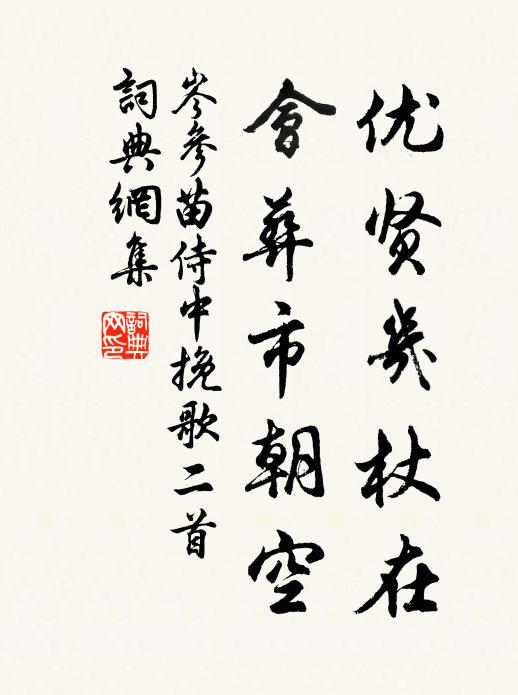 优贤幾杖在
會葬市朝空
岑參苗侍中挽歌二首
詞典網集
詞典网印